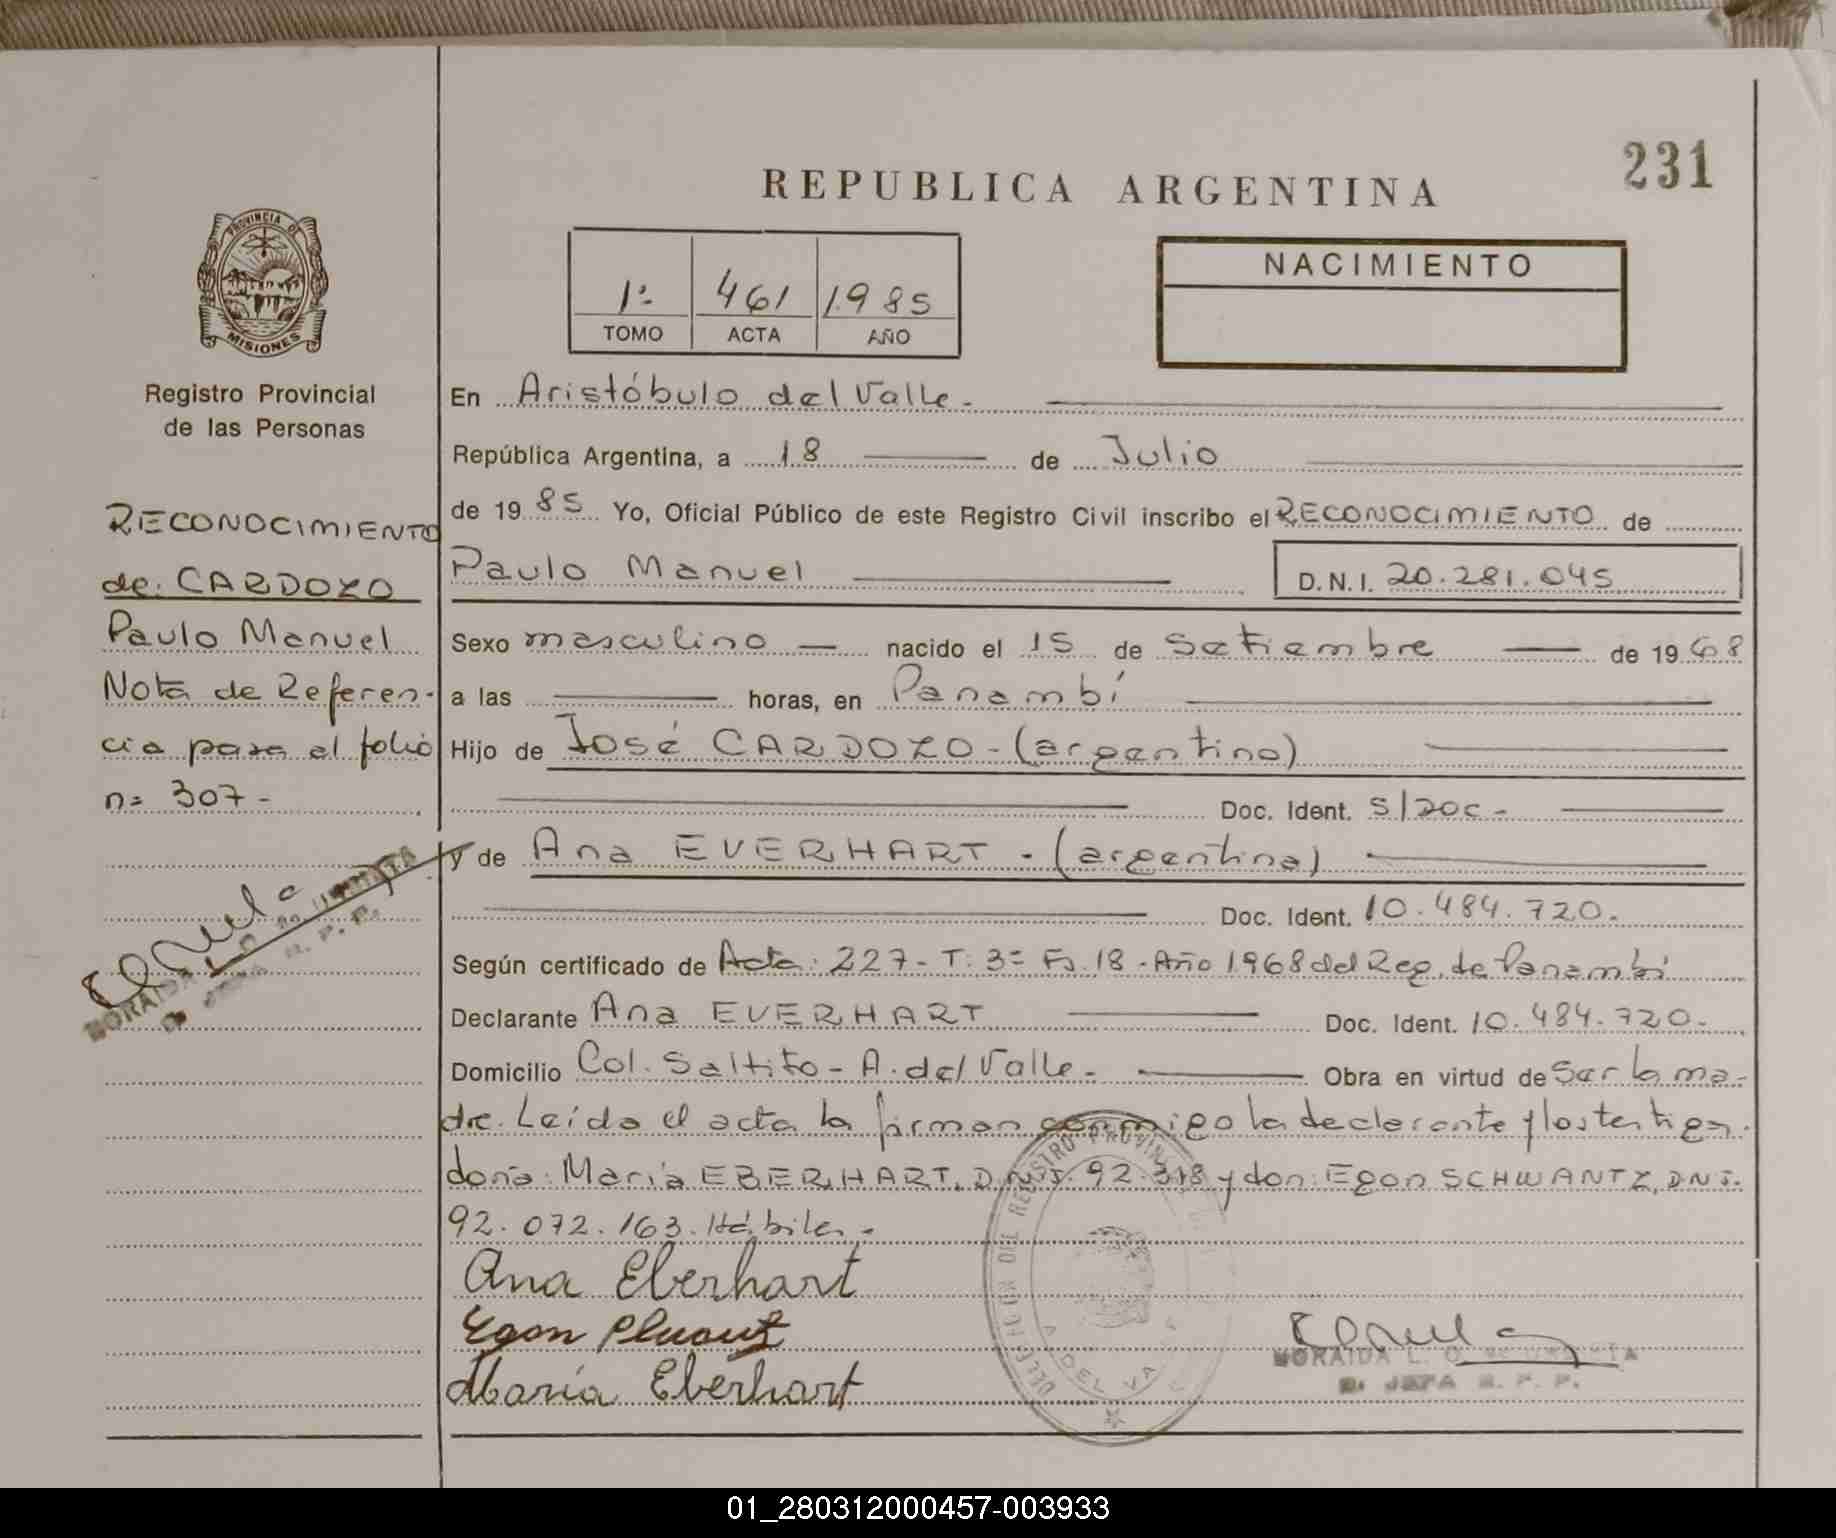 231
REPUBLICA ARGENTINA
PROVINCIA DE
MISIONES
1º 461 1.985
TOMO ACTA AÑO
NACIMIENTO
Registro Provincial
de las Personas
RECONOCIMIENTO
de: CARDOZO
Paulo Manuel
Nota de Referen-
cia para el folio
nº 307-
En Aristóbulo del Valle.
República Argentina, a 18 de Julio
de 1985 Yo, Oficial Público de este Registro Civil inscribo el RECONOCIMIENTO de
Paulo Manuel D.N.I. 20.281.045
Sexo masculino nacido el 15 de Setiembre de 1968
a las horas, en Panambí
Hijo de José CARDOZO-(argentino)
Doc. Ident. S/Doc-
y de Ana EVERHART.-(argentina)
Doc. Ident. 10.484.720.
Según certificado de Acta: 227-T: 3º Fs. 18-Año 1968 del Reg. de Panambí
Declarante Ana EVERHART Doc. Ident. 10.484.720.
Domicilio Col. Saltito-A. del Valle- Obra en virtud de Ser la ma-
dre. Leída el acta la firman conmigo la declarante y los testigos.
doña: María EBERHART, D.N.I. 92.318 y don: Egon SCHWANTZ, DNI.
92.072.163. Hábiles.
Ana Eberhart
Egon
María Eberhart
DEL REGISTRO PROVINCIAL
DEL VA
MORAIDA L. O.
JEFA R. P. P.
MORAIDA
R. P. P.
01_280312000457-003933